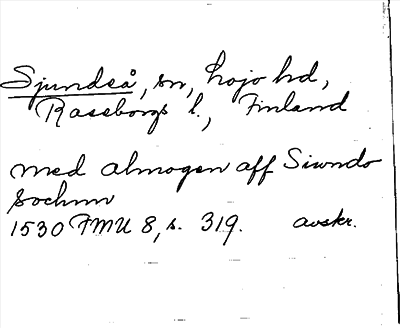 Sjundeå, sn, Lojo hd,
Raseborgs l., Finland
med almogen aff Siwndo
sochnn
1530 FMU 8, s. 319. avskr.